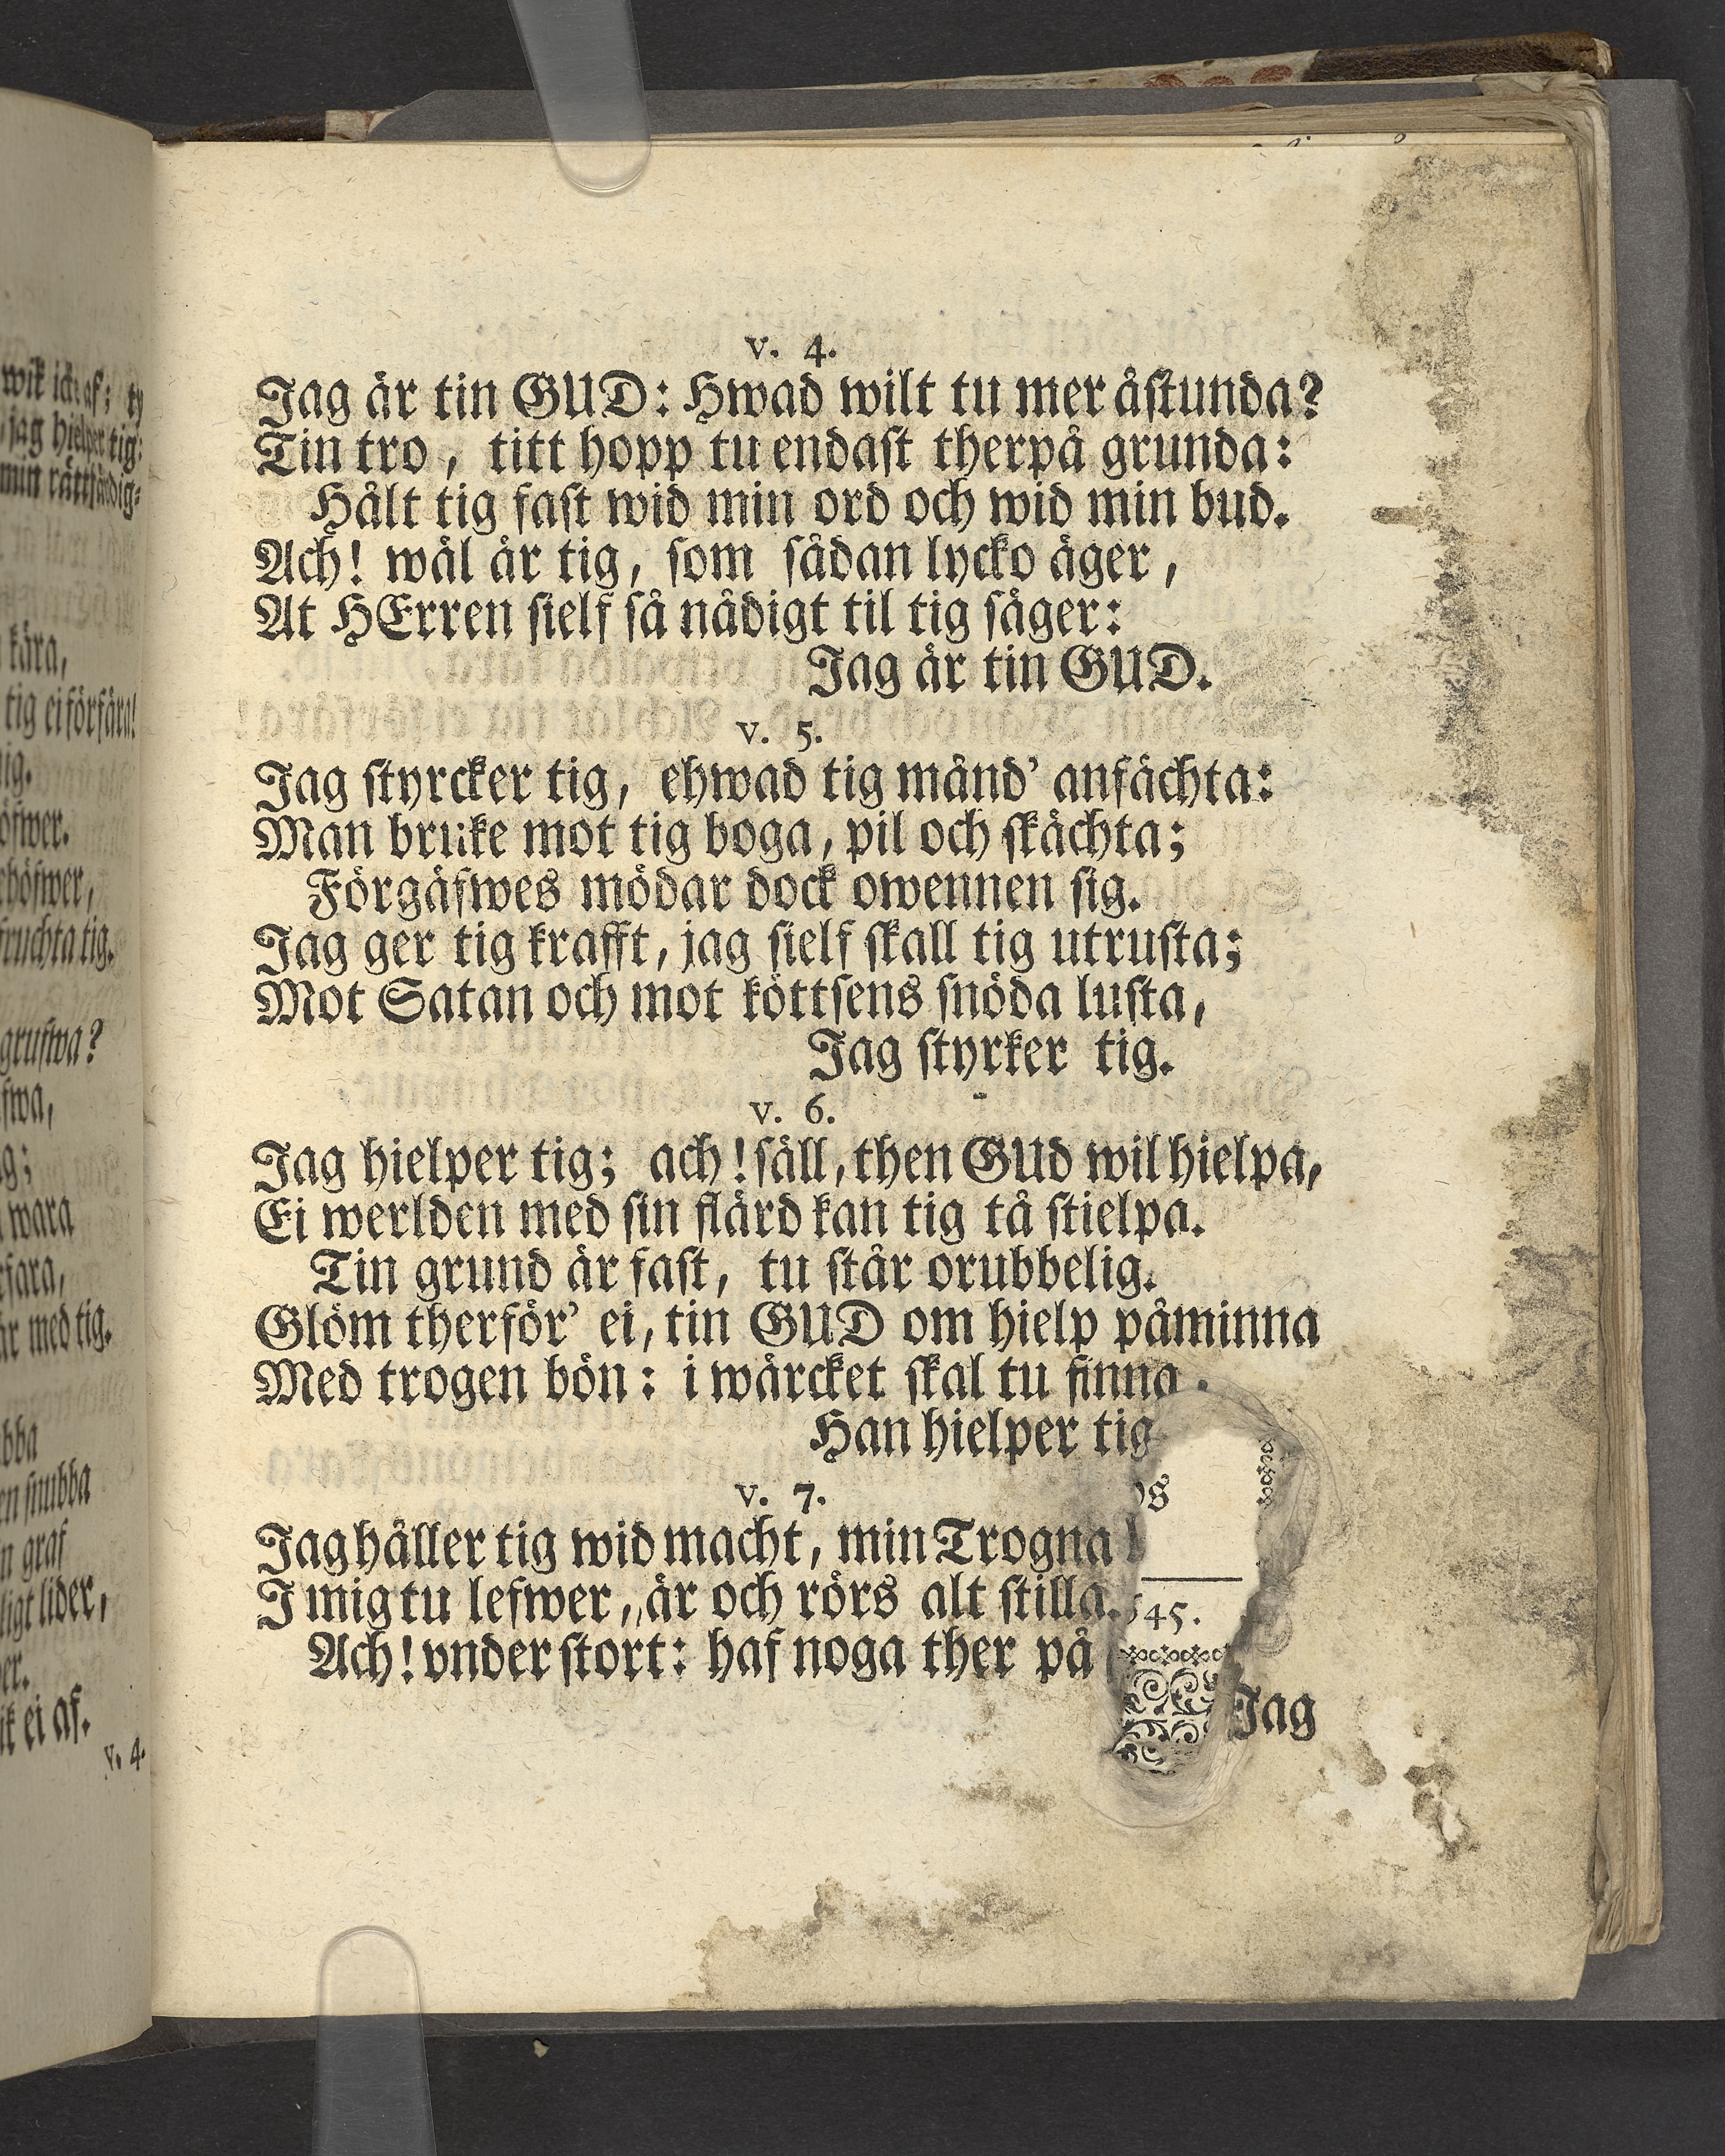 wik ick af; ty
jag hielper tig:
min rättfärdig-
kära,
tig ei förfära!
öfwer.
fruchta tig.
grufwa?
wara
är med tig.
en snubba
n graf
ligt lider,
ei af.
v. 4.
v. 4.
Jag är tin GUD: Hwad wilt tu mer åstunda?
Tin tro, titt hopp tu endast therpå grunda:
Hålt tig fast wid min ord och wid min bud.
Ach! wäl är tig, som sådan lycko äger,
At HErren sielf så nådigt til tig säger:
Jag är tin GUD.
v. 5.
Jag styrcker tig, ehwad tig månd' anfächta:
Man bruke mot tig boga, pil och skächta;
Förgäfwes mödar dock owennen sig.
Jag ger tig krafft, jag sielf skall tig utrusta;
Mot Satan och mot köttsens snöda lusta,
Jag styrker tig.
v. 6.
Jag hielper tig; ach! säll, then GUd wil hielpa,
Ei werlden med sin flärd kan tig tå stielpa.
Tin grund är fast, tu står orubbelig.
Glöm therför' ei, tin GUD om hielp påminna
Med trogen bön: i wärcket skal tu finna.
Han hielper tig
v. 7.
Jag håller tig wid macht, min Trogna
I mig tu lefwer, är och rörs alt stilla. 45.
Ach! vnder stort: haf noga ther på
Jag